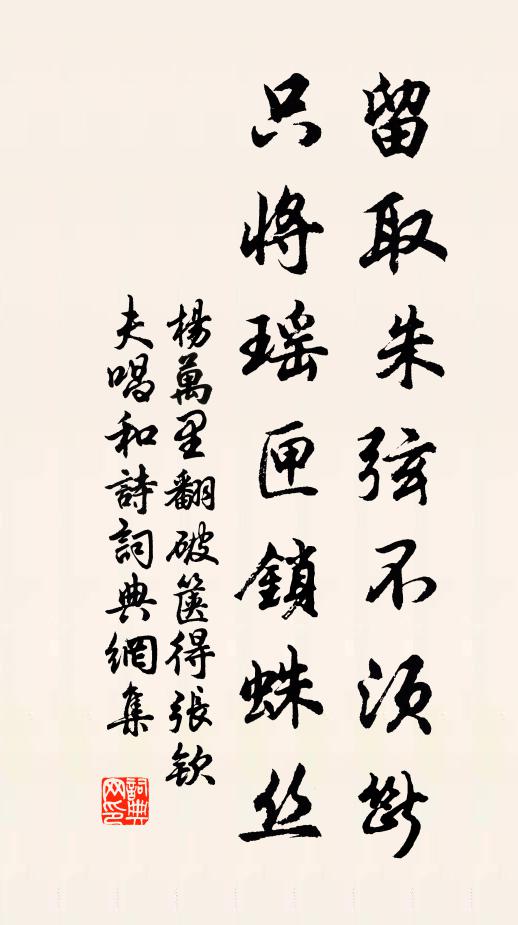 留取朱弦不須斷
只將瑶匣鎖蛛丝
楊萬里翻破篋得張欽
夫唱和詩詞典網集
詞典
网印